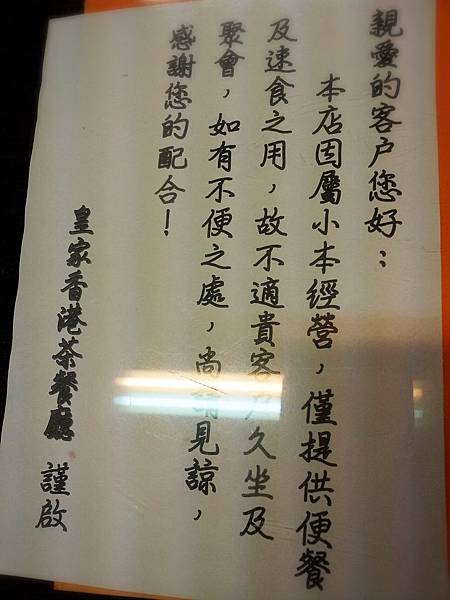 親愛的客户您好：
本店因屬小本經營，僅提供便餐
及速食之用，故不適貴客户久坐及
聚會，如有不便之處，尚請見諒，
感謝您的配合！
皇家香港茶餐廳 謹啟